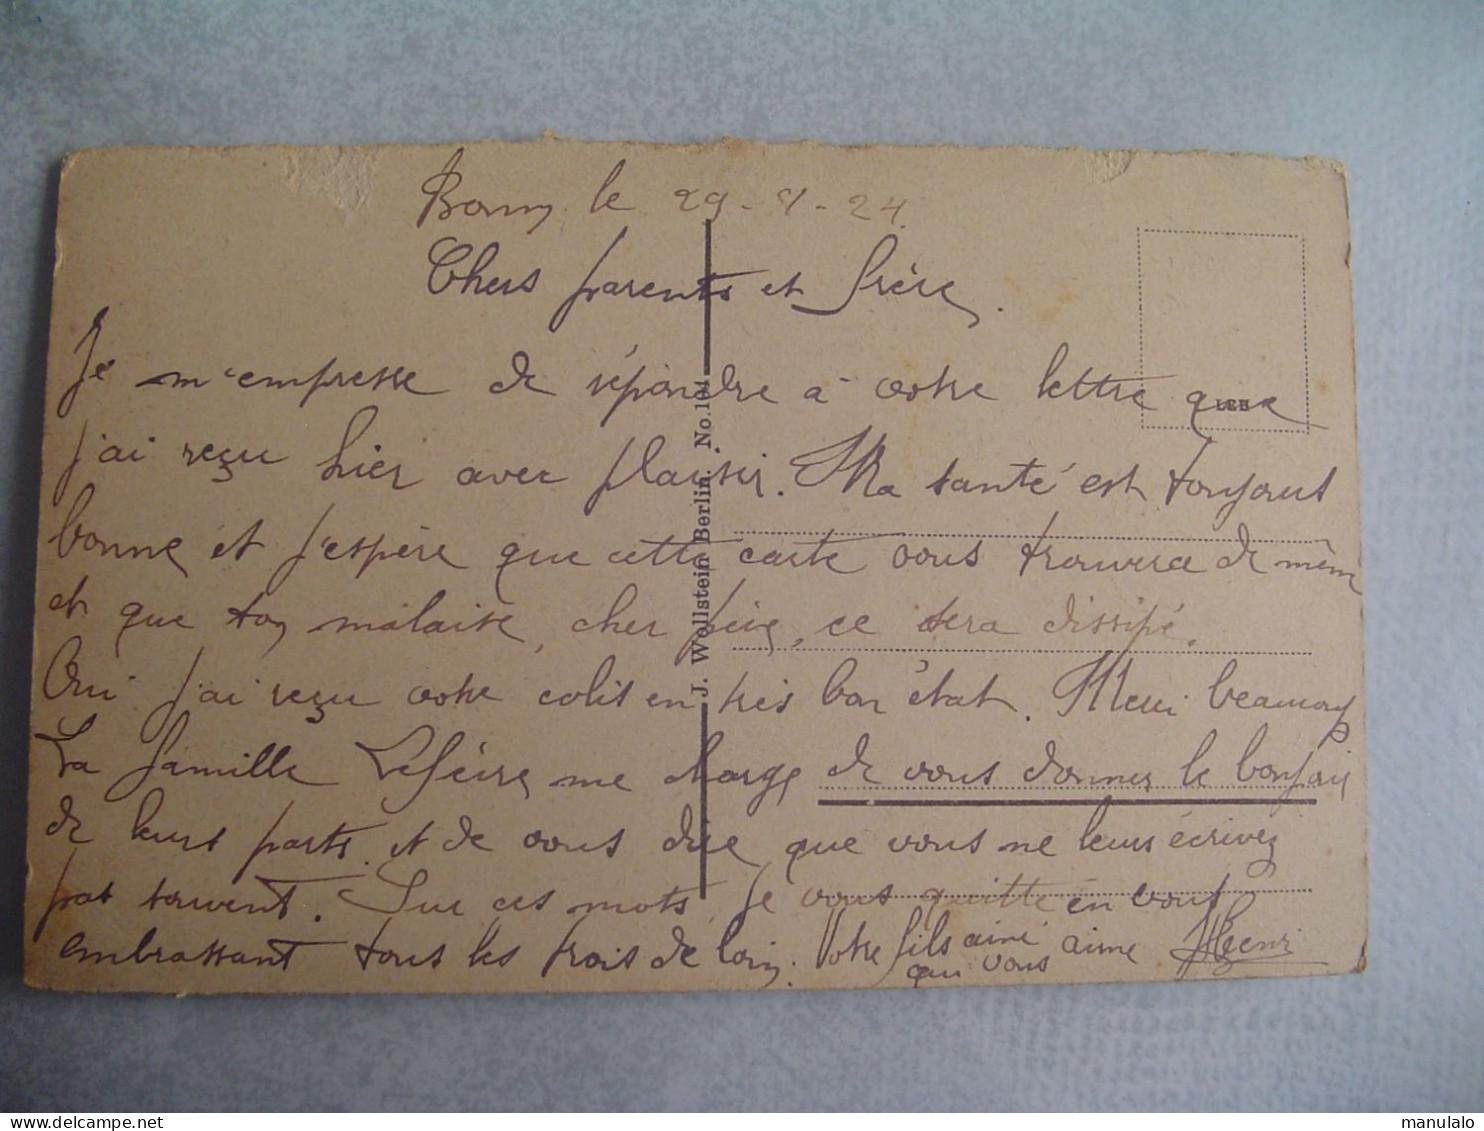 Bonn le 29-8-24.
Chers parents et frère.
Je m'empresse de répondre à votre lettre que
j'ai reçu hier avec plaisir. Ma santé est toujours
bonne et j'espère que cette carte vous trouvera de même
et que ton malaise, cher père, ce sera dissipé.
Oui j'ai reçu votre colis en très bon état. Merci beaucoup
La famille Lefèvre me charge de vous donner le bonjour
de leurs parts et de vous dire que vous ne leurs écrivez
pas souvent. Sur ces mots, je vous quitte en vous
embrassant tous les trois de loin. Votre fils ainé
qui vous aime Henri
J. Wollstein Berlin. No. 104
manulalo